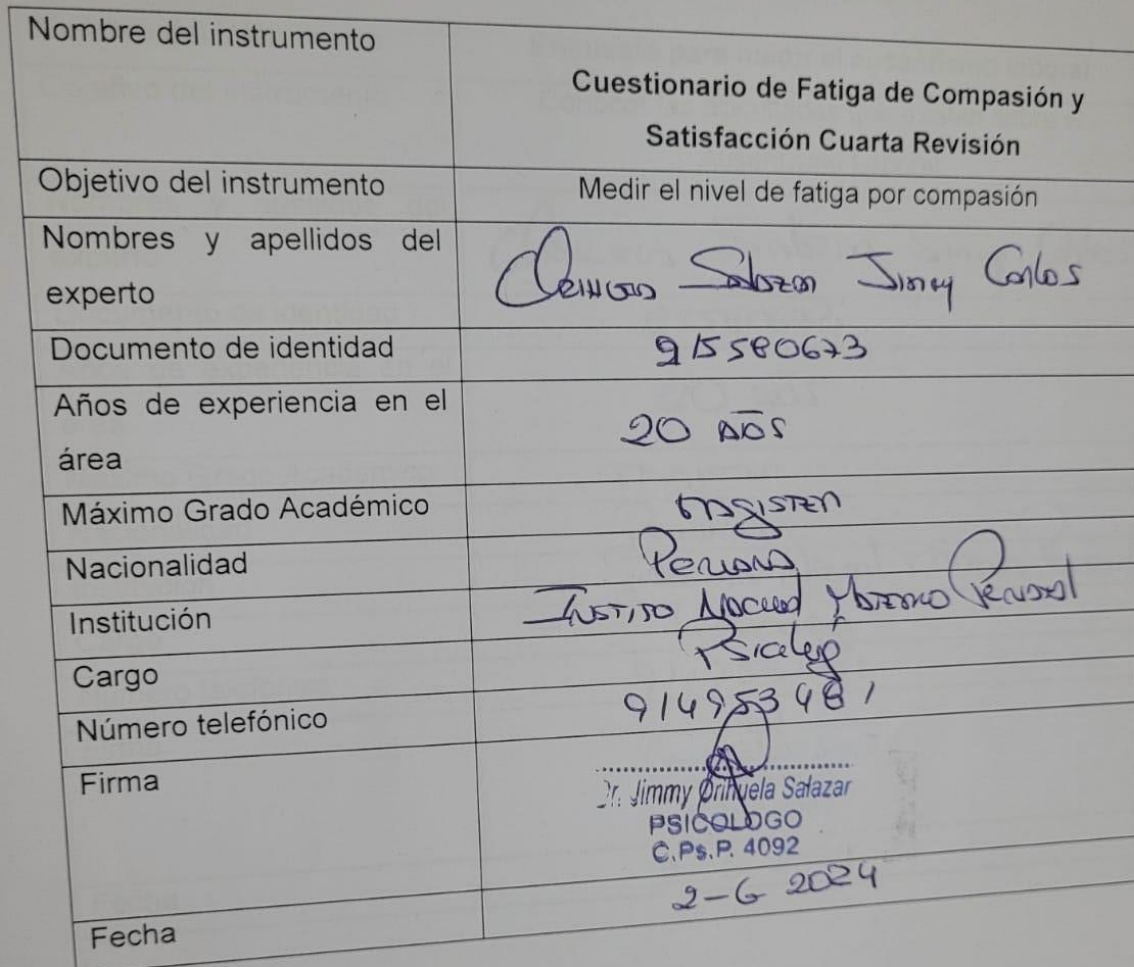 Nombre del instrumento
Cuestionario de Fatiga de Compasión y
Satisfacción Cuarta Revisión
Objetivo del instrumento
Medir el nivel de fatiga por compasión
Nombres y apellidos del
experto
Salazar Jimmy Carlos
Documento de identidad
915580673
Años de experiencia en el
área
20 años
Máximo Grado Académico
Magister
Nacionalidad
Peruana
Institución
Materno Perinatal
Cargo
Psicólogo
Número telefónico
914953481
Firma
Dr. Jimmy Orihuela Salazar
PSICOLOGO
C.Ps.P. 4092
Fecha
2-6 2024